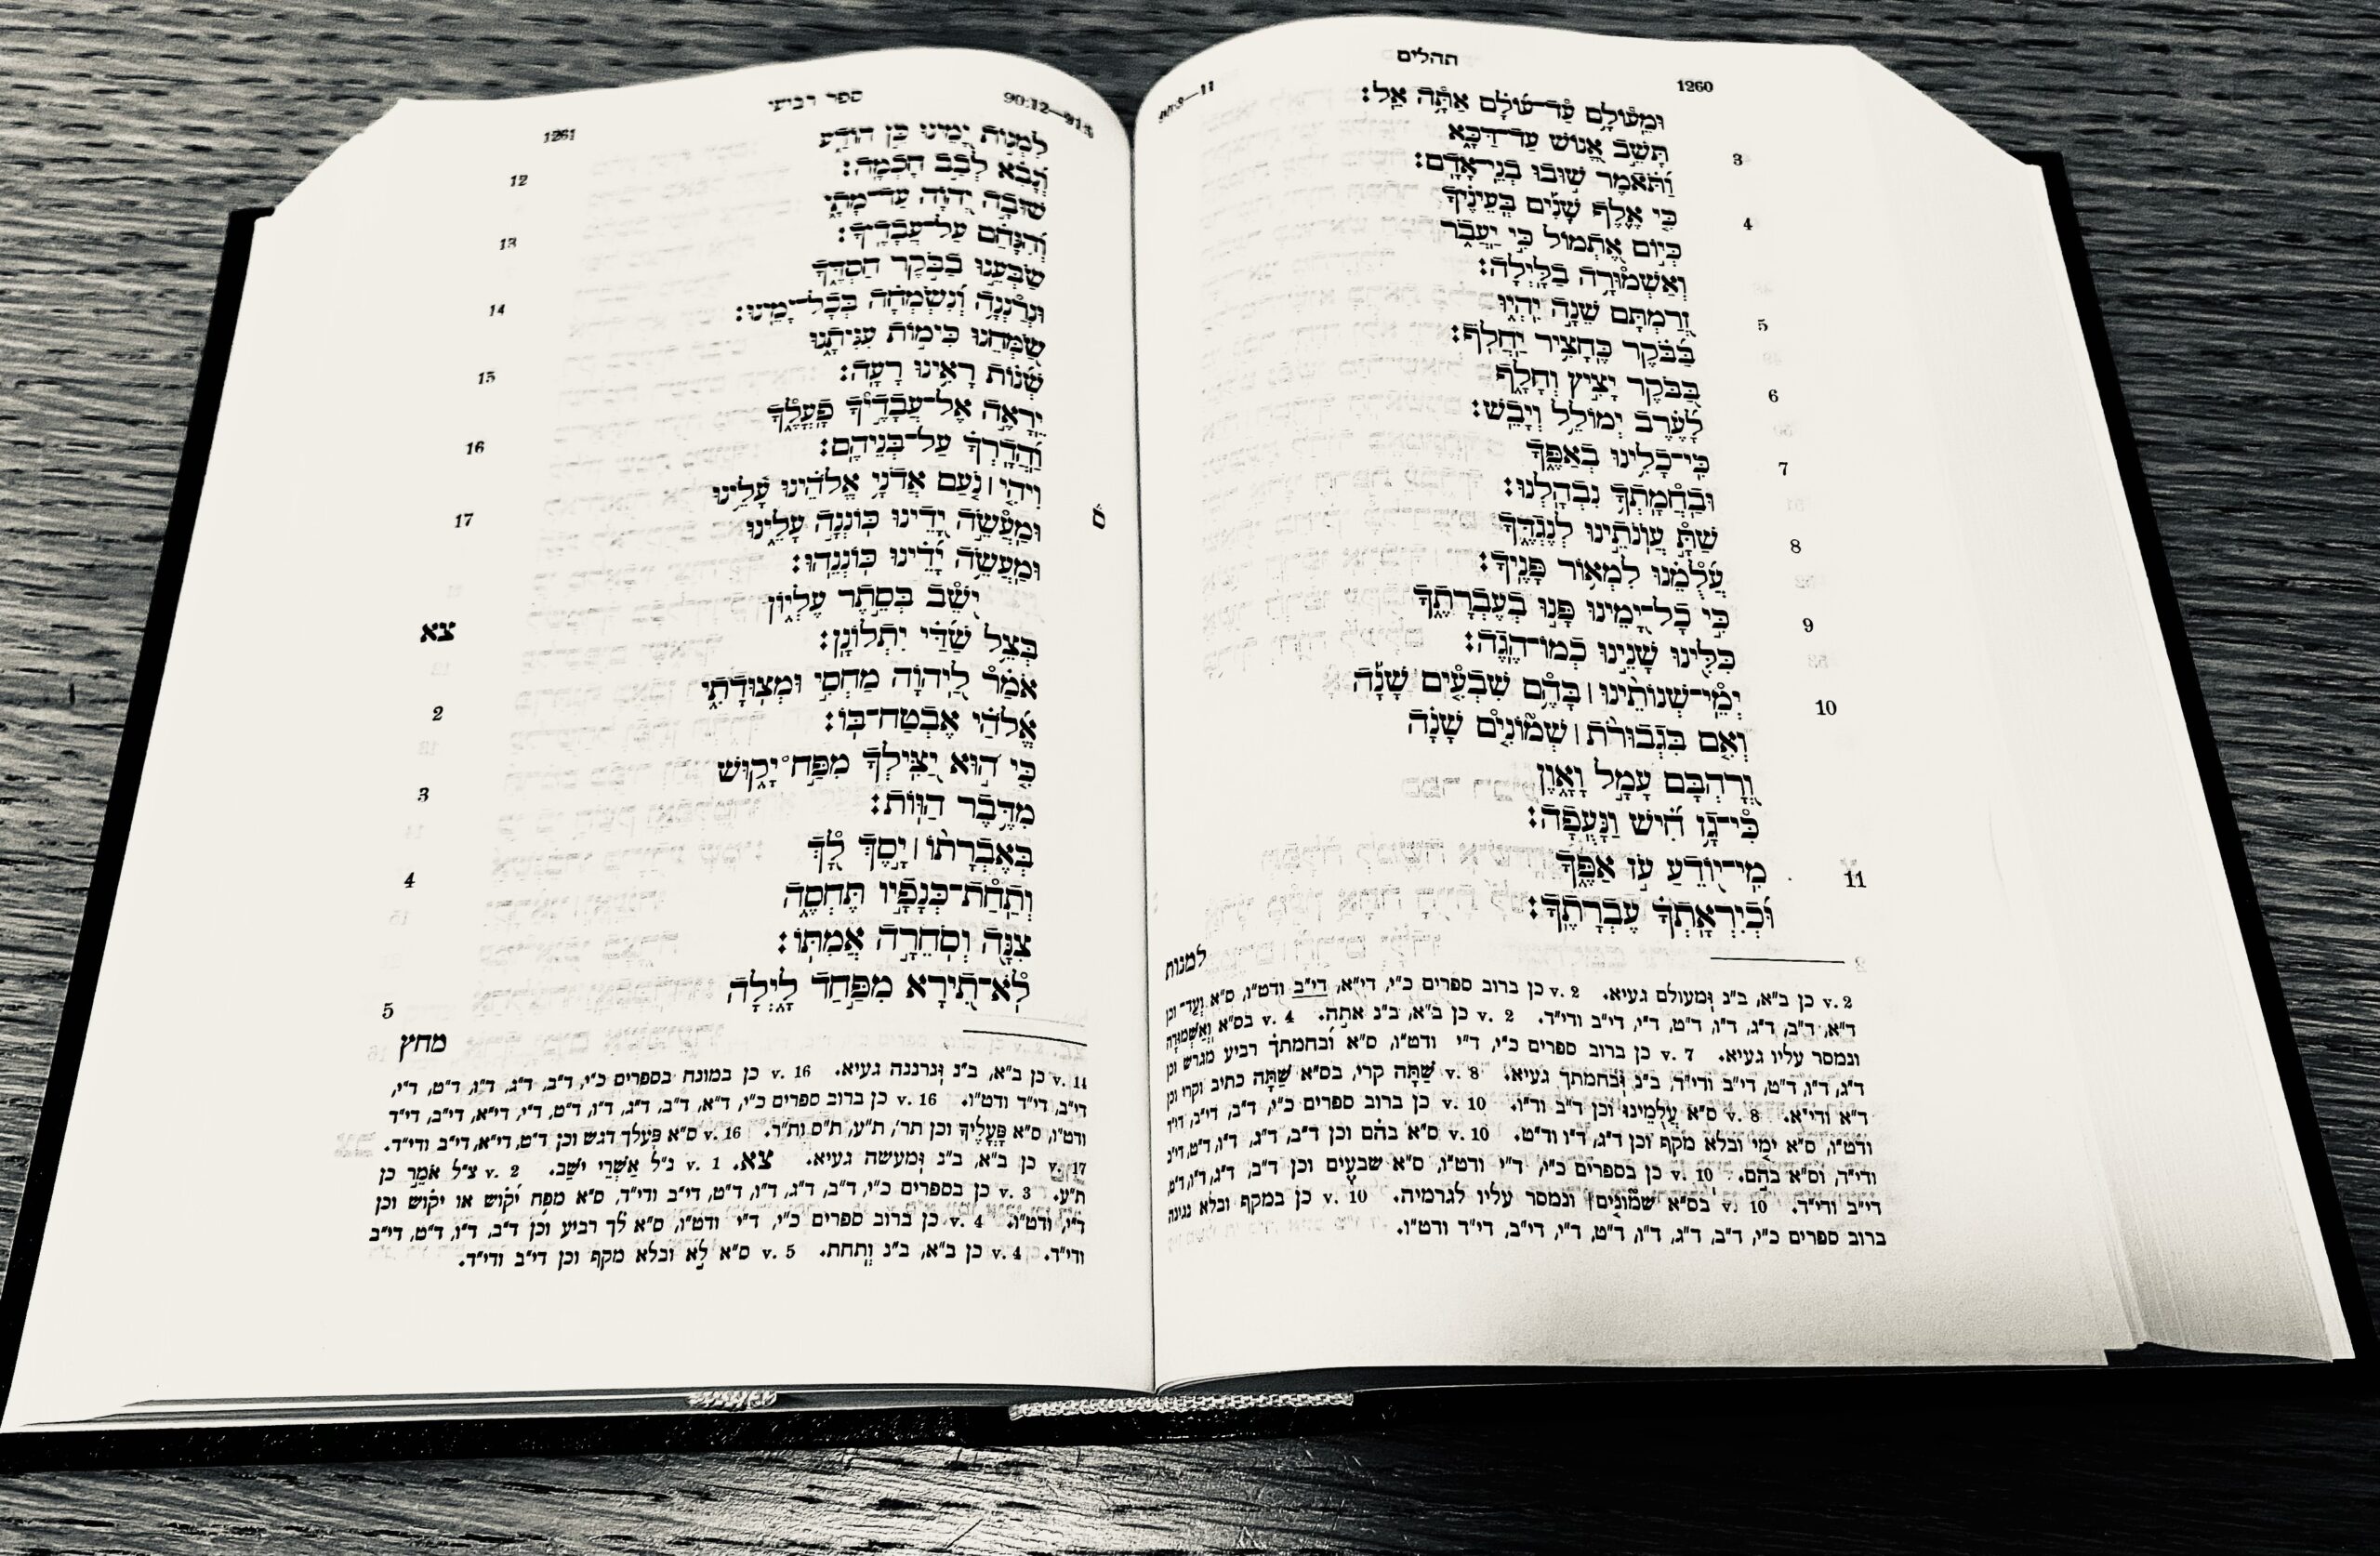 1260
תהלים
וּמֵעוֹלָ֥ם עַד־עוֹלָ֗ם אַתָּ֥ה אֵֽל׃
3 תָּשֵׁ֣ב אֱ֭נוֹשׁ עַד־דַּכָּ֑א
וַ֝תֹּ֗אמֶר שׁ֣וּבוּ בְנֵי־אָדָֽם׃
4 כִּ֤י אֶ֪לֶף שָׁנִ֡ים בְּֽעֵינֶ֗יךָ
כְּי֣וֹם אֶ֭תְמוֹל כִּ֣י יַעֲבֹ֑ר
וְאַשְׁמוּרָ֥ה בַלָּֽיְלָה׃
5 זְ֭רַמְתָּם שֵׁנָ֣ה יִהְי֑וּ
בַּ֝בֹּ֗קֶר כֶּחָצִ֥יר יַחֲלֹֽף׃
6 בַּ֭בֹּקֶר יָצִ֣יץ וְחָלָ֑ף
לָ֝עֶ֗רֶב יְמוֹלֵ֥ל וְיָבֵֽשׁ׃
7 כִּֽי־כָלִ֥ינוּ בְאַפֶּ֑ךָ
וּֽבַחֲמָתְךָ֥ נִבְהָֽלְנוּ׃
8 שַׁתָּ֣ עֲוֺנֹתֵ֣ינוּ לְנֶגְדֶּ֑ךָ
עֲ֝לֻמֵ֗נוּ לִמְא֥וֹר פָּנֶֽיךָ׃
9 כִּ֣י כָל־יָ֭מֵינוּ פָּנ֣וּ בְעֶבְרָתֶ֑ךָ
כִּלִּ֖ינוּ שָׁנֵ֣ינוּ כְמוֹ־הֶֽגֶה׃
10 יְמֵֽי־שְׁנוֹתֵ֨ינוּ ׀ בָּהֶ֥ם שִׁבְעִ֪ים שָׁנָ֡ה
וְאִ֤ם בִּגְבוּרֹ֨ת ׀ שְׁמ֘וֹנִ֤ים שָׁנָ֗ה
וְ֭רָהְבָּם עָמָ֣ל וָאָ֑וֶן
כִּי־גָ֥ז חִ֝֗ישׁ וַנָּעֻֽפָה׃
11 מִֽי־י֭וֹדֵעַ עֹ֣ז אַפֶּ֑ךָ
וּ֝כְיִרְאָתְךָ֗ עֶבְרָתֶֽךָ׃
למנות
v. 2 כן ב״א, ב״נ וּמעולם געיא. v. 2 כן ברוב ספרים כ״י, די״א, די״ב ודט״ו, ס״א וְעַד־ וכן
ד״א, ד״ב, ד״ג, ד״ו, ד״ט, ד״י, די״ב ודי״ד. v. 2 כן ב״א, ב״נ אתה. v. 4 בס״א וְאַשְׁמוּרָה
ונמסר עליו געיא. v. 7 כן ברוב ספרים כ״י, ד״י ודט״ו, ס״א וּבחמתך רביע מגרש וכן
ד״ג, ד״ו, ד״ט, די״ב ודי״ד, ב״נ וּבחמתך געיא. v. 8 שַׁתָּה קרי, בס״א שַׁתָּה כתיב וקרי וכן
ד״א ודי״א. v. 8 ס״א עֲלֻמֵינוּ וכן ד״ב וד״ו. v. 10 כן ברוב ספרים כ״י, ד״ב, די״ב, די״ד
ודט״ו, ס״א ימי ובלא מקף וכן ד״ג, ד״ו וד״ט. v. 10 ס״א בהם וכן ד״ב, ד״ג, ד״ו, ד״ט, די״ב
ודי״ד, וס״א בהם. v. 10 כן בספרים כ״י, ד״י ודט״ו, ס״א שבעים וכן ד״ב, ד״ג, ד״ו, ד״ט,
די״ב ודי״ד. v. 10 בס״א שמונים׀ ונמסר עליו לגרמיה. v. 10 כן במקף ובלא נגינה
ברוב ספרים כ״י, ד״ב, ד״ג, ד״ו, ד״ט, ד״י, די״ב, די״ד ודט״ו.
1261
ספר רביעי
90:12—91:5
12 לִמְנ֣וֹת יָ֭מֵינוּ כֵּ֣ן הוֹדַ֑ע
וְ֝נָבִ֗א לְבַ֣ב חָכְמָֽה׃
13 שׁוּבָ֣ה יְ֭הוָה עַד־מָתָ֑י
וְ֝הִנָּחֵ֗ם עַל־עֲבָדֶֽיךָ׃
14 שַׂבְּעֵ֣נוּ בַבֹּ֣קֶר חַסְדֶּ֑ךָ
וּֽנְרַנְּנָ֥ה וְ֝נִשְׂמְחָ֗ה בְּכָל־יָמֵֽינוּ׃
15 שַׂ֭מְּחֵנוּ כִּימ֣וֹת עִנִּיתָ֑נוּ
שְׁ֝נ֗וֹת רָאִ֥ינוּ רָעָֽה׃
16 יֵרָאֶ֣ה אֶל־עֲבָדֶ֣יךָ פָעֳלֶ֑ךָ
וַ֝הֲדָרְךָ֗ עַל־בְּנֵיהֶֽם׃
17 וִיהִ֤י ׀ נֹ֤עַם אֲדֹנָ֥י אֱלֹהֵ֗ינוּ עָ֫לֵ֥ינוּ
וּמַעֲשֵׂ֣ה יָ֭דֵינוּ כּוֹנְנָ֣ה עָלֵ֑ינוּ
וּֽמַעֲשֵׂ֥ה יָ֝דֵ֗ינוּ כּוֹנְנֵֽהוּ׃
צא יֹ֭שֵׁב בְּסֵ֣תֶר עֶלְי֑וֹן
בְּצֵ֥ל שַׁ֝דַּ֗י יִתְלוֹנָֽן׃
2 אֹמַ֗ר לַ֭יהוָה מַחְסִ֣י וּמְצוּדָתִ֑י
אֱ֝לֹהַ֗י אֶבְטַח־בּֽוֹ׃
3 כִּ֤י ה֣וּא יַ֭צִּֽילְךָ מִפַּ֥ח יָק֗וּשׁ
מִדֶּ֥בֶר הַוּֽוֹת׃
4 בְּאֶבְרָת֨וֹ ׀ יָ֣סֶךְ לָ֭ךְ
וְתַ֣חַת־כְּנָפָ֣יו תֶּחְסֶ֑ה
צִנָּ֖ה וְֽסֹחֵרָ֣ה אֲמִתּֽוֹ׃
5 לֹא־תִ֭ירָא מִפַּ֣חַד לָ֑יְלָה
מחץ
v. 14 כן ב״א, ב״נ וּנרננה געיא. v. 16 כן במונח בספרים כ״י, ד״ב, ד״ג, ד״ו, ד״ט, ד״י,
די״ב, די״ד ודט״ו. v. 16 כן ברוב ספרים כ״י, ד״א, ד״ב, ד״ג, ד״ו, ד״ט, ד״י, די״א, די״ב, די״ד
ודט״ו, ס״א פָּעֳלֶיךָ וכן תר׳, ת״ע, ת״ס ות״ר. v. 16 ס״א פעלך דגש וכן ד״ט, די״א, די״ב ודי״ד.
v. 17 כן ב״א, ב״נ וּמעשה געיא. צא. v. 1 נ״ל אַשְׁרֵי יֹשֵׁב. v. 2 צ״ל אֹמֵר כן
ת״ע. v. 3 כן בספרים כ״י, ד״ב, ד״ג, ד״ו, ד״ט, די״ב ודי״ד, ס״א מפח יקוש או יקוש וכן
ד״י, ודט״ו. v. 4 כן ברוב ספרים כ״י, ד״י ודט״ו, ס״א לך רביע וכן ד״ב, ד״ו, ד״ט, די״ב
ודי״ד. v. 4 כן ב״א, ב״נ וְתחת. v. 5 ס״א לֹא ובלא מקף וכן די״ב ודי״ד.